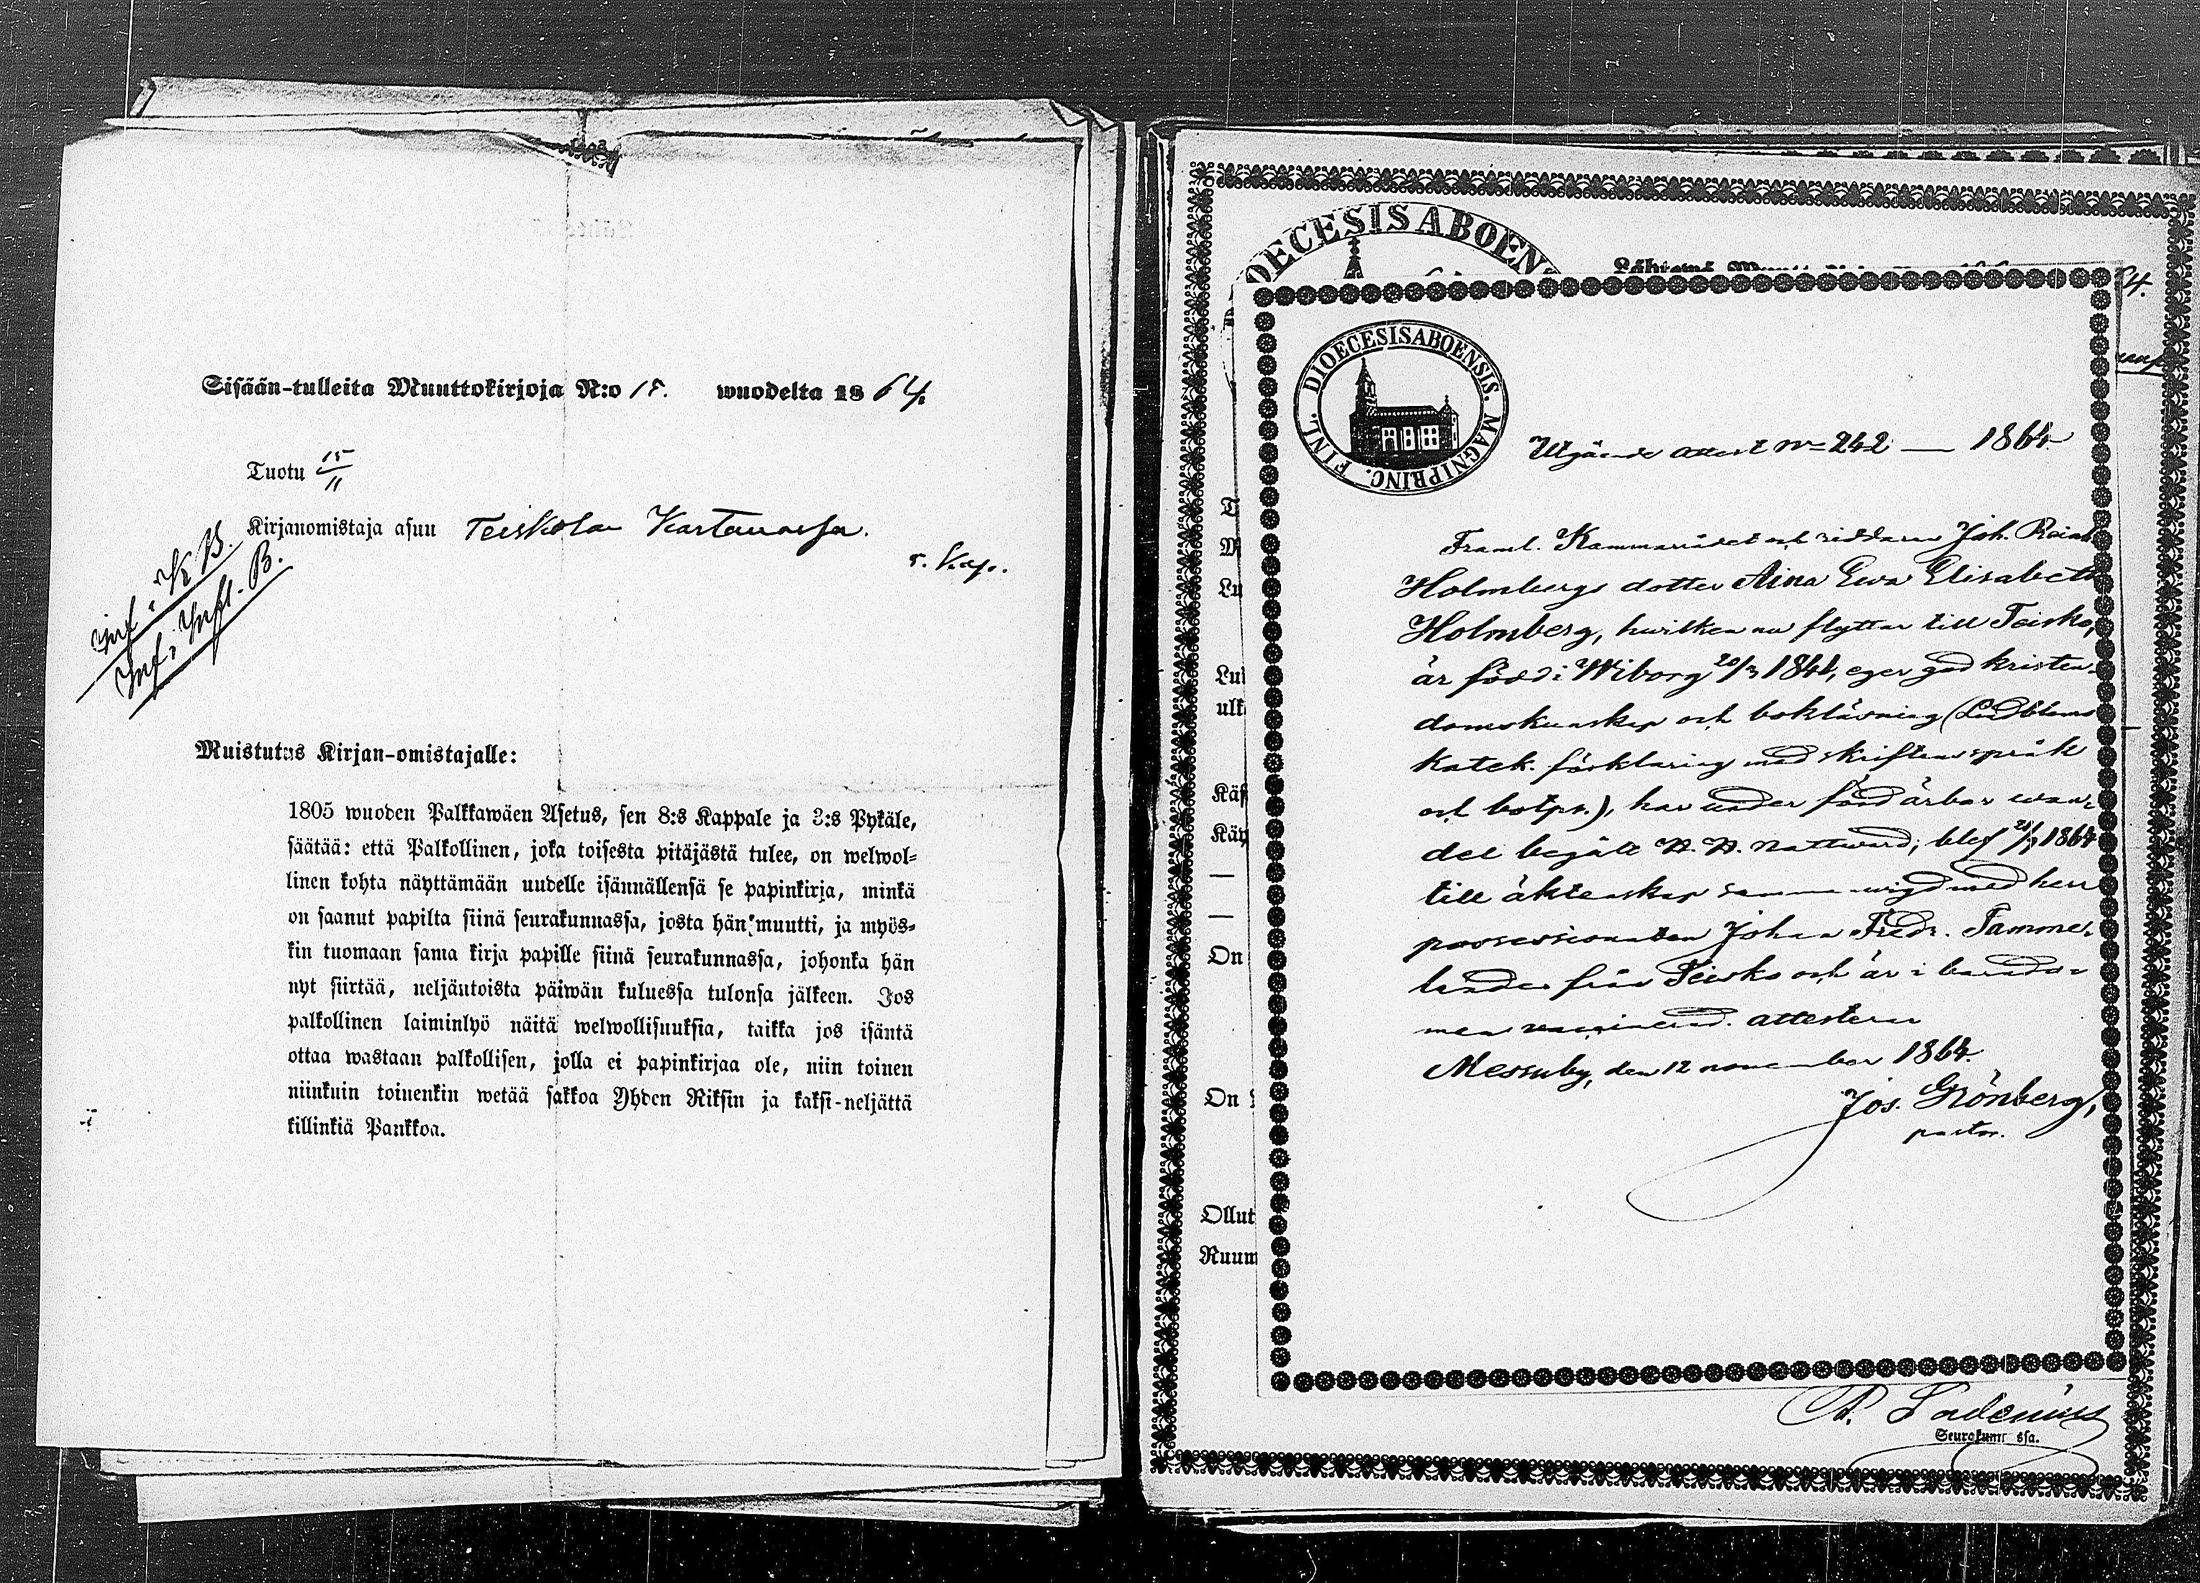 Sisään-tulleita Muuttokirjoja N:o 15. wuodelta 1864.
Tuotu 15/11
Kirjanomistaja asuu Teiskolan Kartanossa.
s. Kap.
Inf. i K. B.
Inf. i Infl. B.
Muistutus Kirjan-omistajalle:
1805 wuoden Palkkawäen Asetus, sen 8:s Kappale ja 3:s Pykäle,
säätää: että Palkollinen, joka toisesta pitäjästä tulee, on welwol-
linen kohta näyttämään uudelle isännällensä se papinkirja, minkä
on saanut papilta siinä seurakunnassa, josta hän muutti, ja myös-
kin tuomaan sama kirja papille siinä seurakunnassa, johonka hän
nyt siirtää, neljäntoista päiwän kuluessa tulonsa jälkeen. Jos
palkollinen laiminlyö näitä welwollisuuksia, taikka jos isäntä
ottaa wastaan palkollisen, jolla ei papinkirjaa ole, niin toinen
niinkuin toinenkin wetää sakkoa Yhden Riksin ja kaksi-neljättä
killinkiä Pankkoa.
DIOECESIS ABOENSIS. MAGNI PRINC. FINL.
Utgående attest No 242 — 1864
Framl. Kammarrådet och riddaren Joh. Reinh.
Holmbergs dotter Aina Ewa Elisabeth
Holmberg, hwilken nu flyttar till Teisko,
är född i Wiborg 20/3 1841, eger god kristen-
domskunskap och boklärning (Lindbloms
katek. förklaring med skriftens språk
och botps.), har underför ärbar wan-
del begått H. H. Nattward; blef 21/9 1864
till äktenskap sammanwigd med herr
possessionaten Johan Fredr. Tamme-
lander från Teisko och är i barndo-
men vaccinerad. attesterar
Messuby, den 12 november 1864.
Jos. Grönberg,
pastor.
OECESIS ABOEN
Lu
Lu
ulk
Käy
On
On
Ollut
Ruum
Seurakunn ssa.